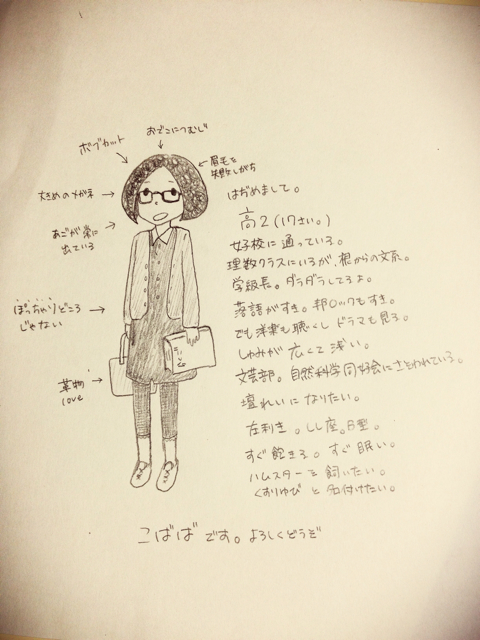 ボブカット
おでこにつむじ
眉毛を
失敗しがち
大きめのメガネ
あごが常に
出ている
ぽっちゃりどころ
じゃない
薬物
love
はじめまして。
高2(17さい。)
女子校に通っている。
理数クラスにいるが、根からの文系。
学級長。ダラダラしてるよ。
落語がすき。邦ロックもすき。
でも洋楽も聴くし ドラマも見る。
しゅみが 広くて 浅い。
文芸部。自然科学同好会にさそわれている。
壇れいになりたい。
左利き。しし座。B型。
すぐ飽きる。すぐ眠い。
ハムスターを飼いたい。
くすりゆび と 名付けたい。
こばばです。よろしくどうぞ